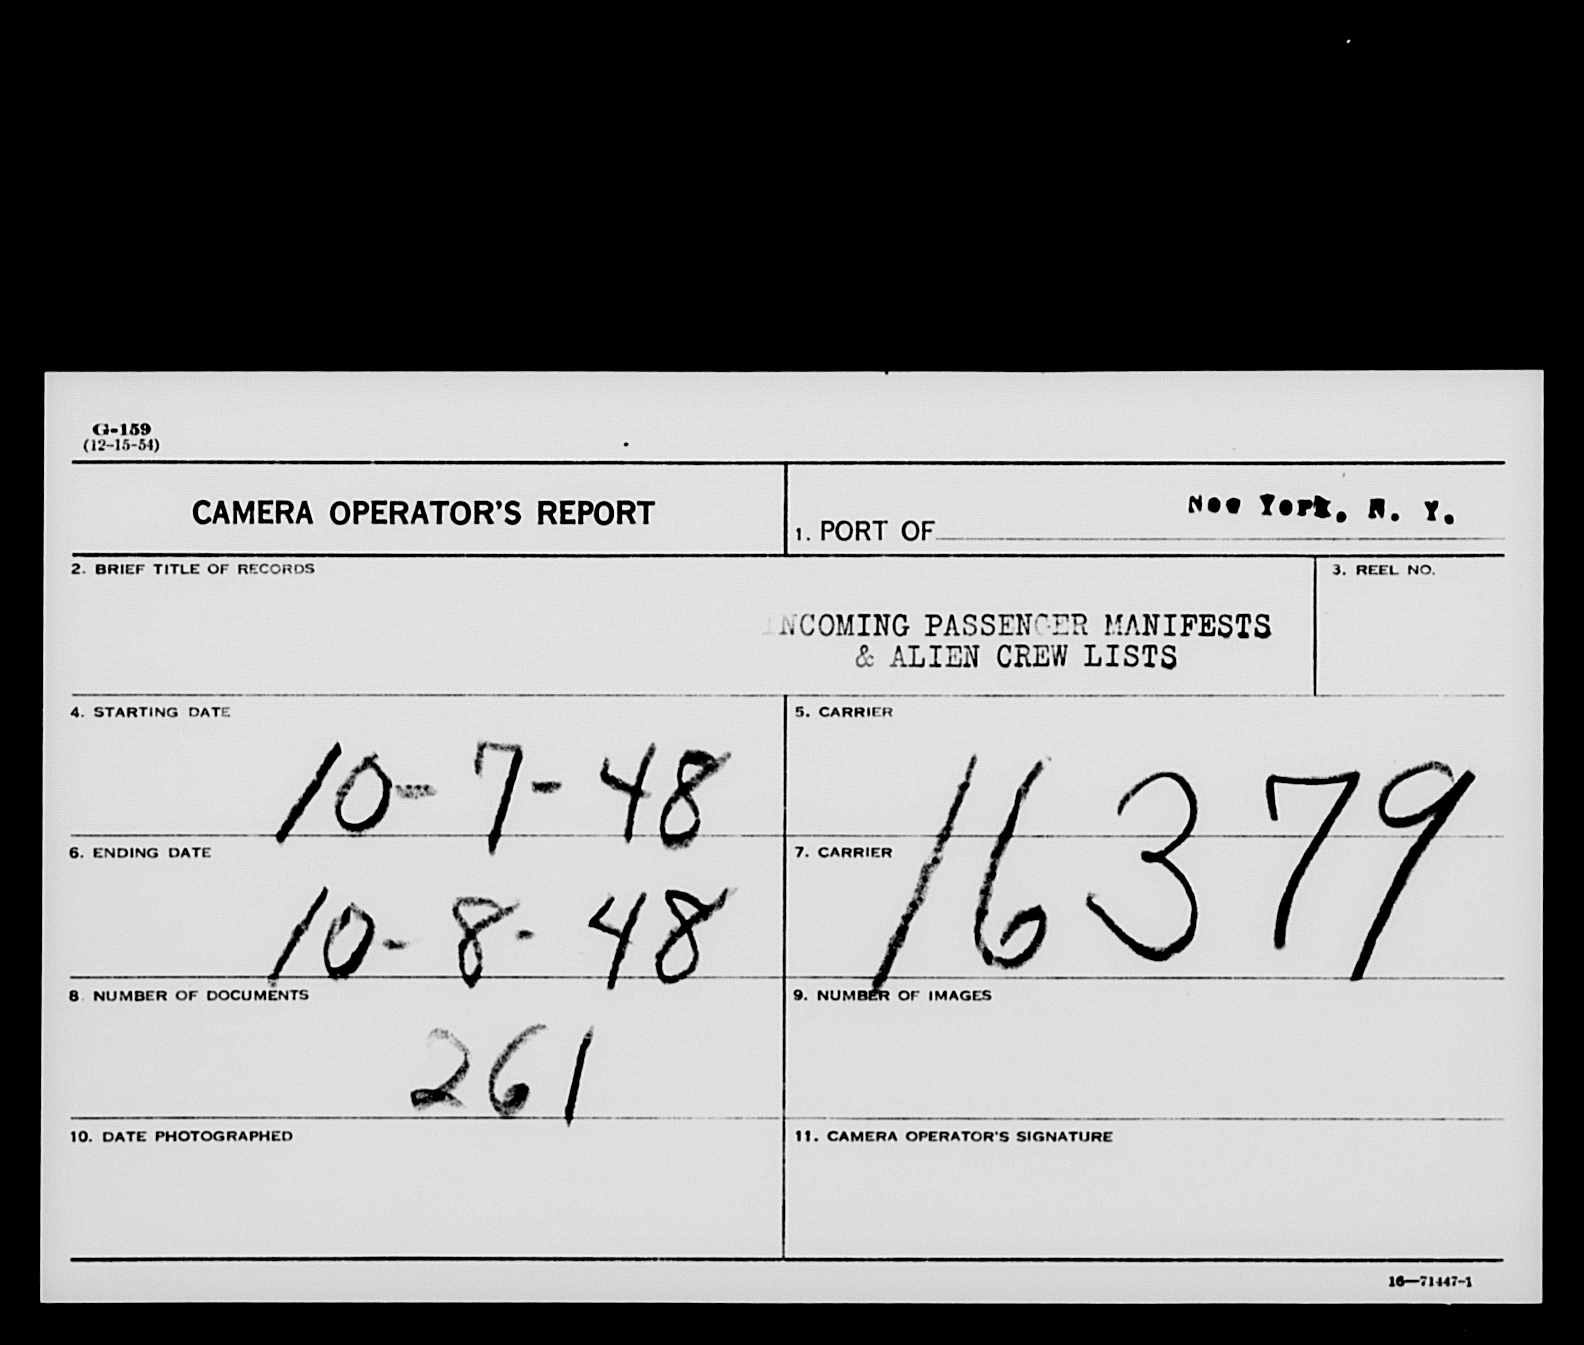 G-159
(12-15-54)
CAMERA OPERATOR'S REPORT
1. PORT OF New York, N. Y.
2. BRIEF TITLE OF RECORDS
3. REEL NO.
INCOMING PASSENGER MANIFESTS
& ALIEN CREW LISTS
4. STARTING DATE
10-7-48
5. CARRIER
16379
6. ENDING DATE
10-8-48
7. CARRIER
8. NUMBER OF DOCUMENTS
261
9. NUMBER OF IMAGES
10. DATE PHOTOGRAPHED
11. CAMERA OPERATOR'S SIGNATURE
16—71447-1